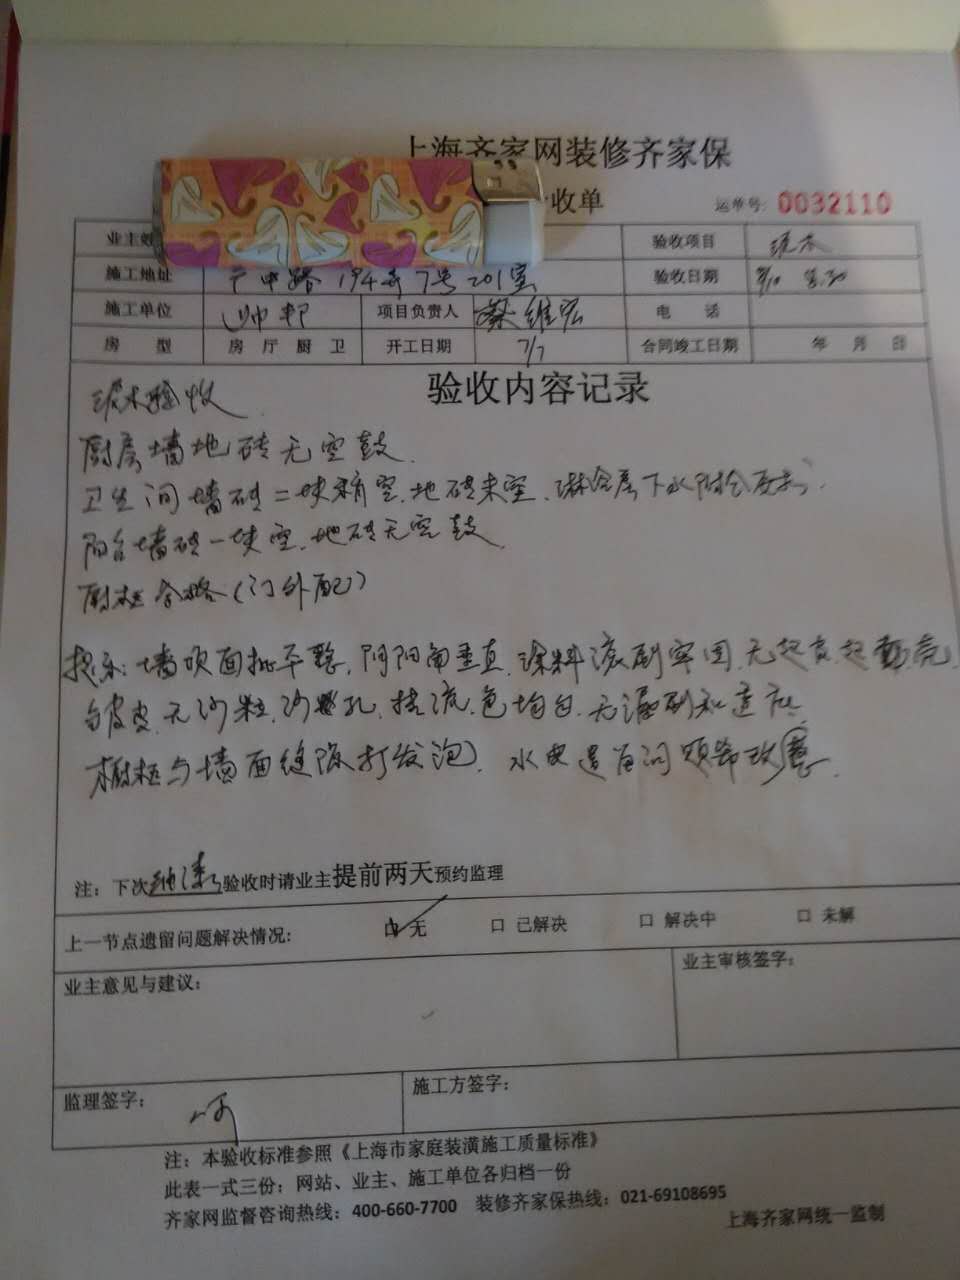 上海齐家网装修齐家保
收单
运单号: 0032110
业主姓 验收项目 泥木
施工地址 广中路194弄7号201室 验收日期 8/10
施工单位 帅邦 项目负责人 蔡维宏 电 话
房 型 房 厅 厨 卫 开工日期 7/7 合同竣工日期 年 月 日
验收内容记录
泥木验收
厨房墙地砖无空鼓.
卫生间墙砖二块稍空.地砖未空.淋浴房下水
阳台墙砖一块空.地砖无空鼓.
厨柜合格(门外配)
提示:墙顶面批平整.阴阳角垂直.涂料滚刷牢固.无起泡.起壳
皱皮.无沙粒.沙眼孔.挂流.色均匀.无漏刷和透底
橱柜与墙面缝隙打发泡.水电
注: 下次油漆验收时请业主提前两天预约监理
上一节点遗留问题解决情况: 口 无 口 已解决 口 解决中 口 未解
业主意见与建议: 业主审核签字:
监理签字: 施工方签字:
注: 本验收标准参照《上海市家庭装潢施工质量标准》
此表一式三份: 网站、业主、施工单位各归档一份
齐家网监督咨询热线: 400-660-7700 装修齐家保热线: 021-69108695
上海齐家网统一监制